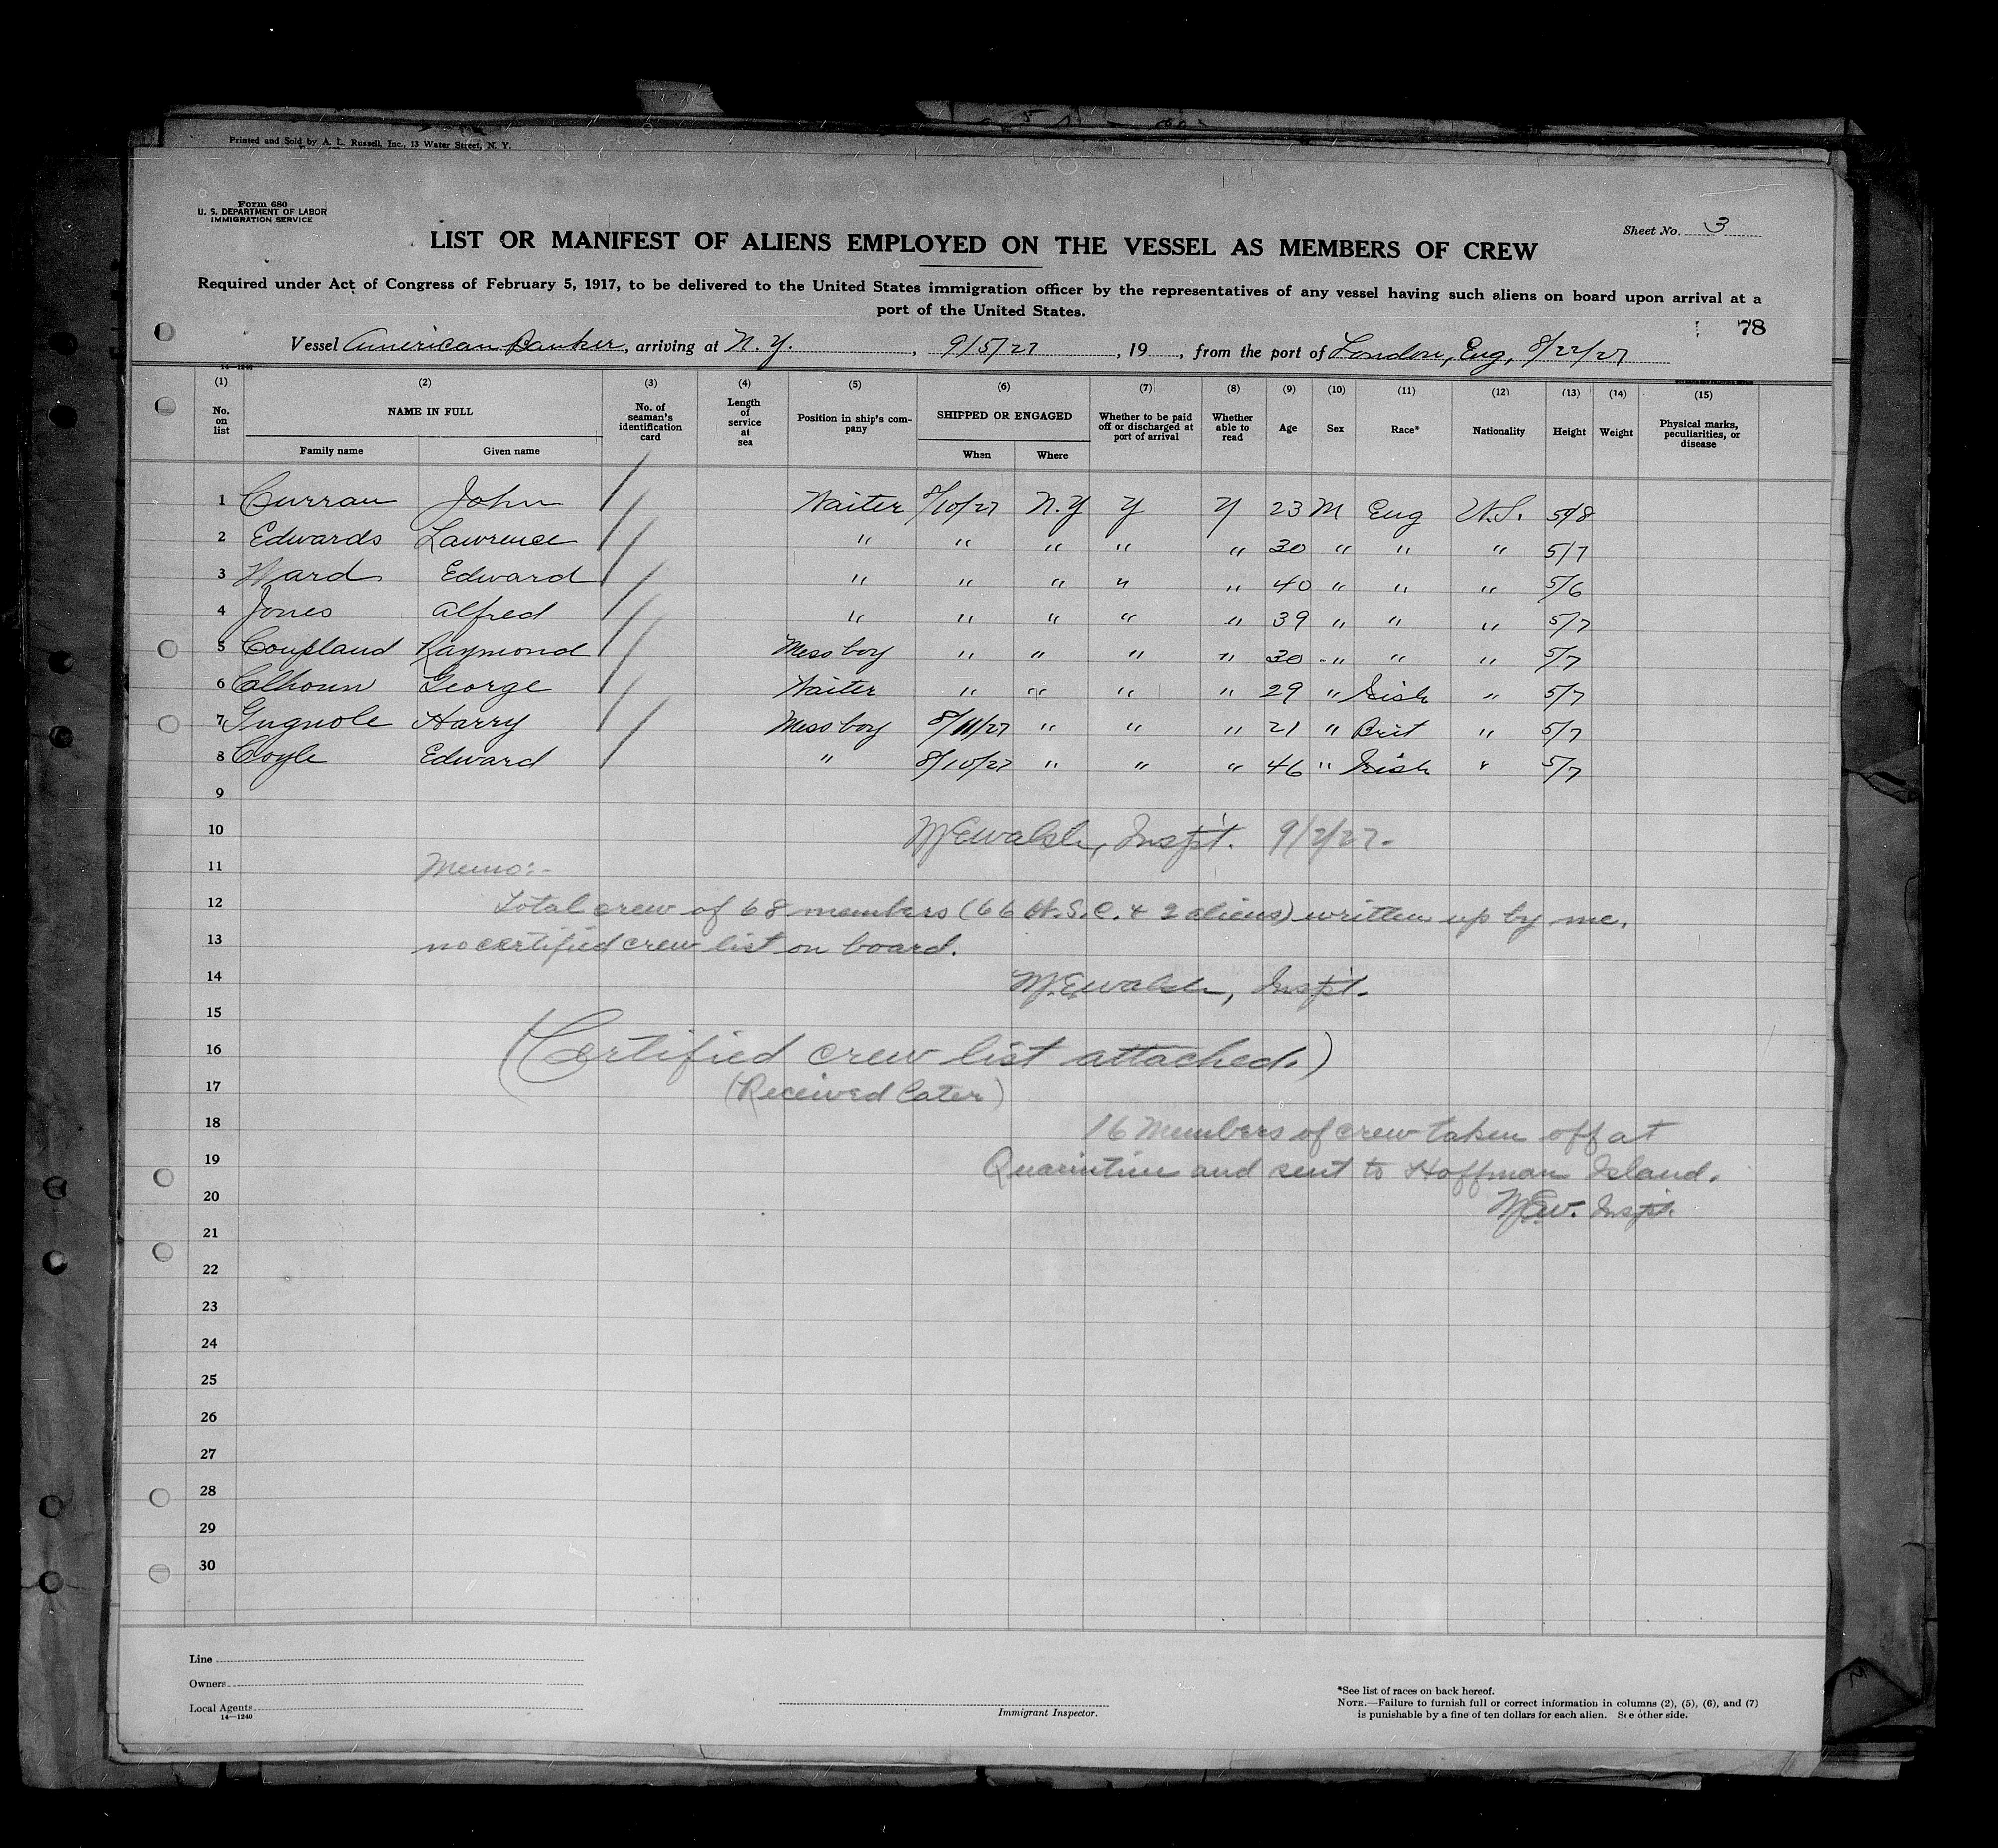 Printed and Sold by A. L. Russell, Inc., 13 Water Street, N. Y.
Form 680
U. S. DEPARTMENT OF LABOR
IMMIGRATION SERVICE
Sheet No. 3
LIST OR MANIFEST OF ALIENS EMPLOYED ON THE VESSEL AS MEMBERS OF CREW
Required under Act of Congress of February 5, 1917, to be delivered to the United States immigration officer by the representatives of any vessel having such aliens on board upon arrival at a
port of the United States.
78
Vessel American Banker, arriving at N. Y. , 9/5/27 , 19 , from the port of London, Eng, 8/22/27
14—1240
(1) (2) (3) (4) (5) (6) (7) (8) (9) (10) (11) (12) (13) (14) (15)
No. on list NAME IN FULL Family name Given name No. of seaman's identification card Length of service at sea Position in ship's company SHIPPED OR ENGAGED When Where Whether to be paid off or discharged at port of arrival Whether able to read Age Sex Race* Nationality Height Weight Physical marks, peculiarities, or disease
1 Curran John Waiter 8/10/27 N.Y Y Y 23 M Eng U.S. 5/8
2 Edwards Lawrence " " " " " 30 " " " 5/7
3 Ward Edward " " " " " 40 " " " 5/6
4 Jones Alfred " " " " " 39 " " " 5/7
5 Coupland Raymond Mess boy " " " " 30 " " " 5/7
6 Calhoun George Waiter " " " " 29 " Irish " 5/7
7 Gugnole Harry Mess boy 8/11/27 " " " 21 " Brit " 5/7
8 Coyle Edward " 8/10/27 " " " 46 " Irish " 5/7
9
10 M E Walsh, Insp't. 9/2/27.
11 Memo:-
12 Total crew of 68 members (66 U.S.C. & 2 aliens) written up by me.
13 no certified crew list on board.
14 M.E. Walsh, Insp't.
15
16 (Certified crew list attached.)
17 (Received later)
18 16 Members of crew taken off at
19 Quarintine and sent to Hoffman Island.
20 M.E.W. Insp't.
21
22
23
24
25
26
27
28
29
30
Line
Owners
Local Agents
14—1240
Immigrant Inspector.
*See list of races on back hereof.
NOTE.—Failure to furnish full or correct information in columns (2), (5), (6), and (7)
is punishable by a fine of ten dollars for each alien. See other side.